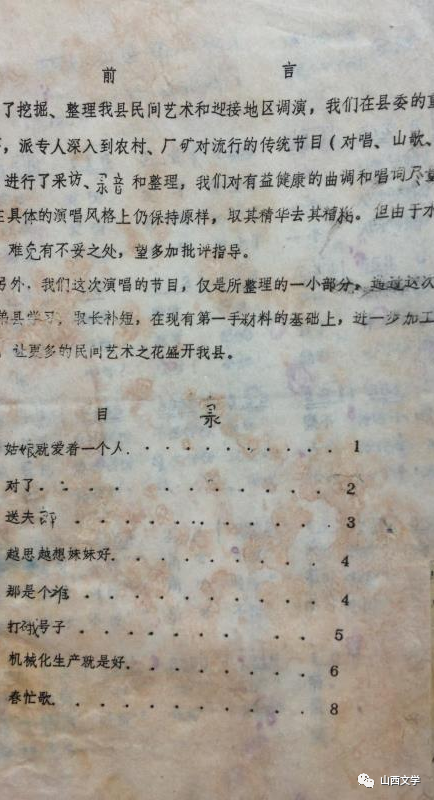 前 言
了挖掘、整理我县民间艺术和迎接地区调演，我们在县委的重
，派专人深入到农村、厂矿对流行的传统节目（对唱、山歌、
进行了采访、录音和整理，我们对有益健康的曲调和唱词尽量
具体的演唱风格上仍保持原样，取其精华去其糟粕。但由于水
难免有不妥之处，望多加批评指导。
另外，我们这次演唱的节目，仅是所整理的一小部分，通过这次
弟县学习，取长补短，在现有第一手材料的基础上，进一步加工
，让更多的民间艺术之花盛开我县。
目 录
姑娘就爱看一个人 . . . . . . . . . . 1
对了 . . . . . . . . . . 2
送夫郎 . . . . . . . . . . 3
越思越想妹妹好 . . . . . . . . . . 4
那是个谁 . . . . . . . . . . 4
打硪号子 . . . . . . . . . . 5
机械化生产就是好 . . . . . . . . . 6
春忙歌 . . . . . . . . . . 8
山西文学